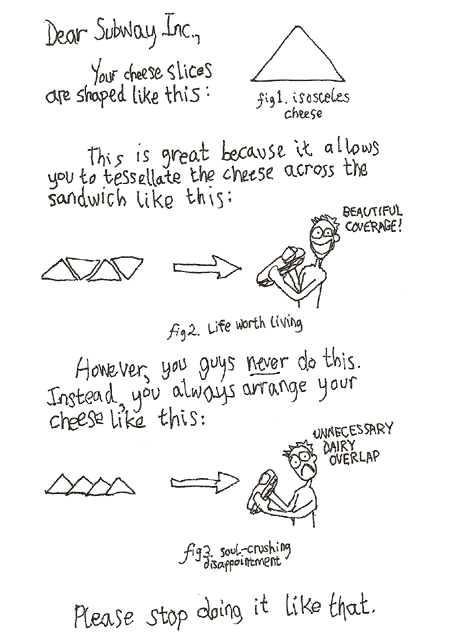 Dear Subway Inc.,
Your cheese slices
are shaped like this:
fig1. isosceles
cheese
This is great because it allows
you to tessellate the cheese across the
sandwich like this:
BEAUTIFUL
COVERAGE!
fig2. Life worth living
However, you guys never do this.
Instead, you always arrange your
cheese like this:
UNNECESSARY
DAIRY
OVERLAP
fig3. soul-crushing
disappointment
Please stop doing it like that.